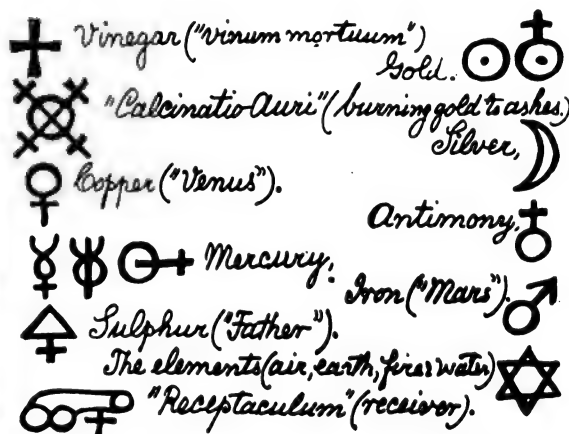 Vinegar ("vinum mortuum")
Gold.
"Calcinatio Auri" (burning gold to ashes.)
Silver,
Copper ("Venus").
Antimony,
Mercury;
Iron ("Mars").
Sulphur ("Father").
The elements (air, earth, fire & water)
"Receptaculum" (receiver).